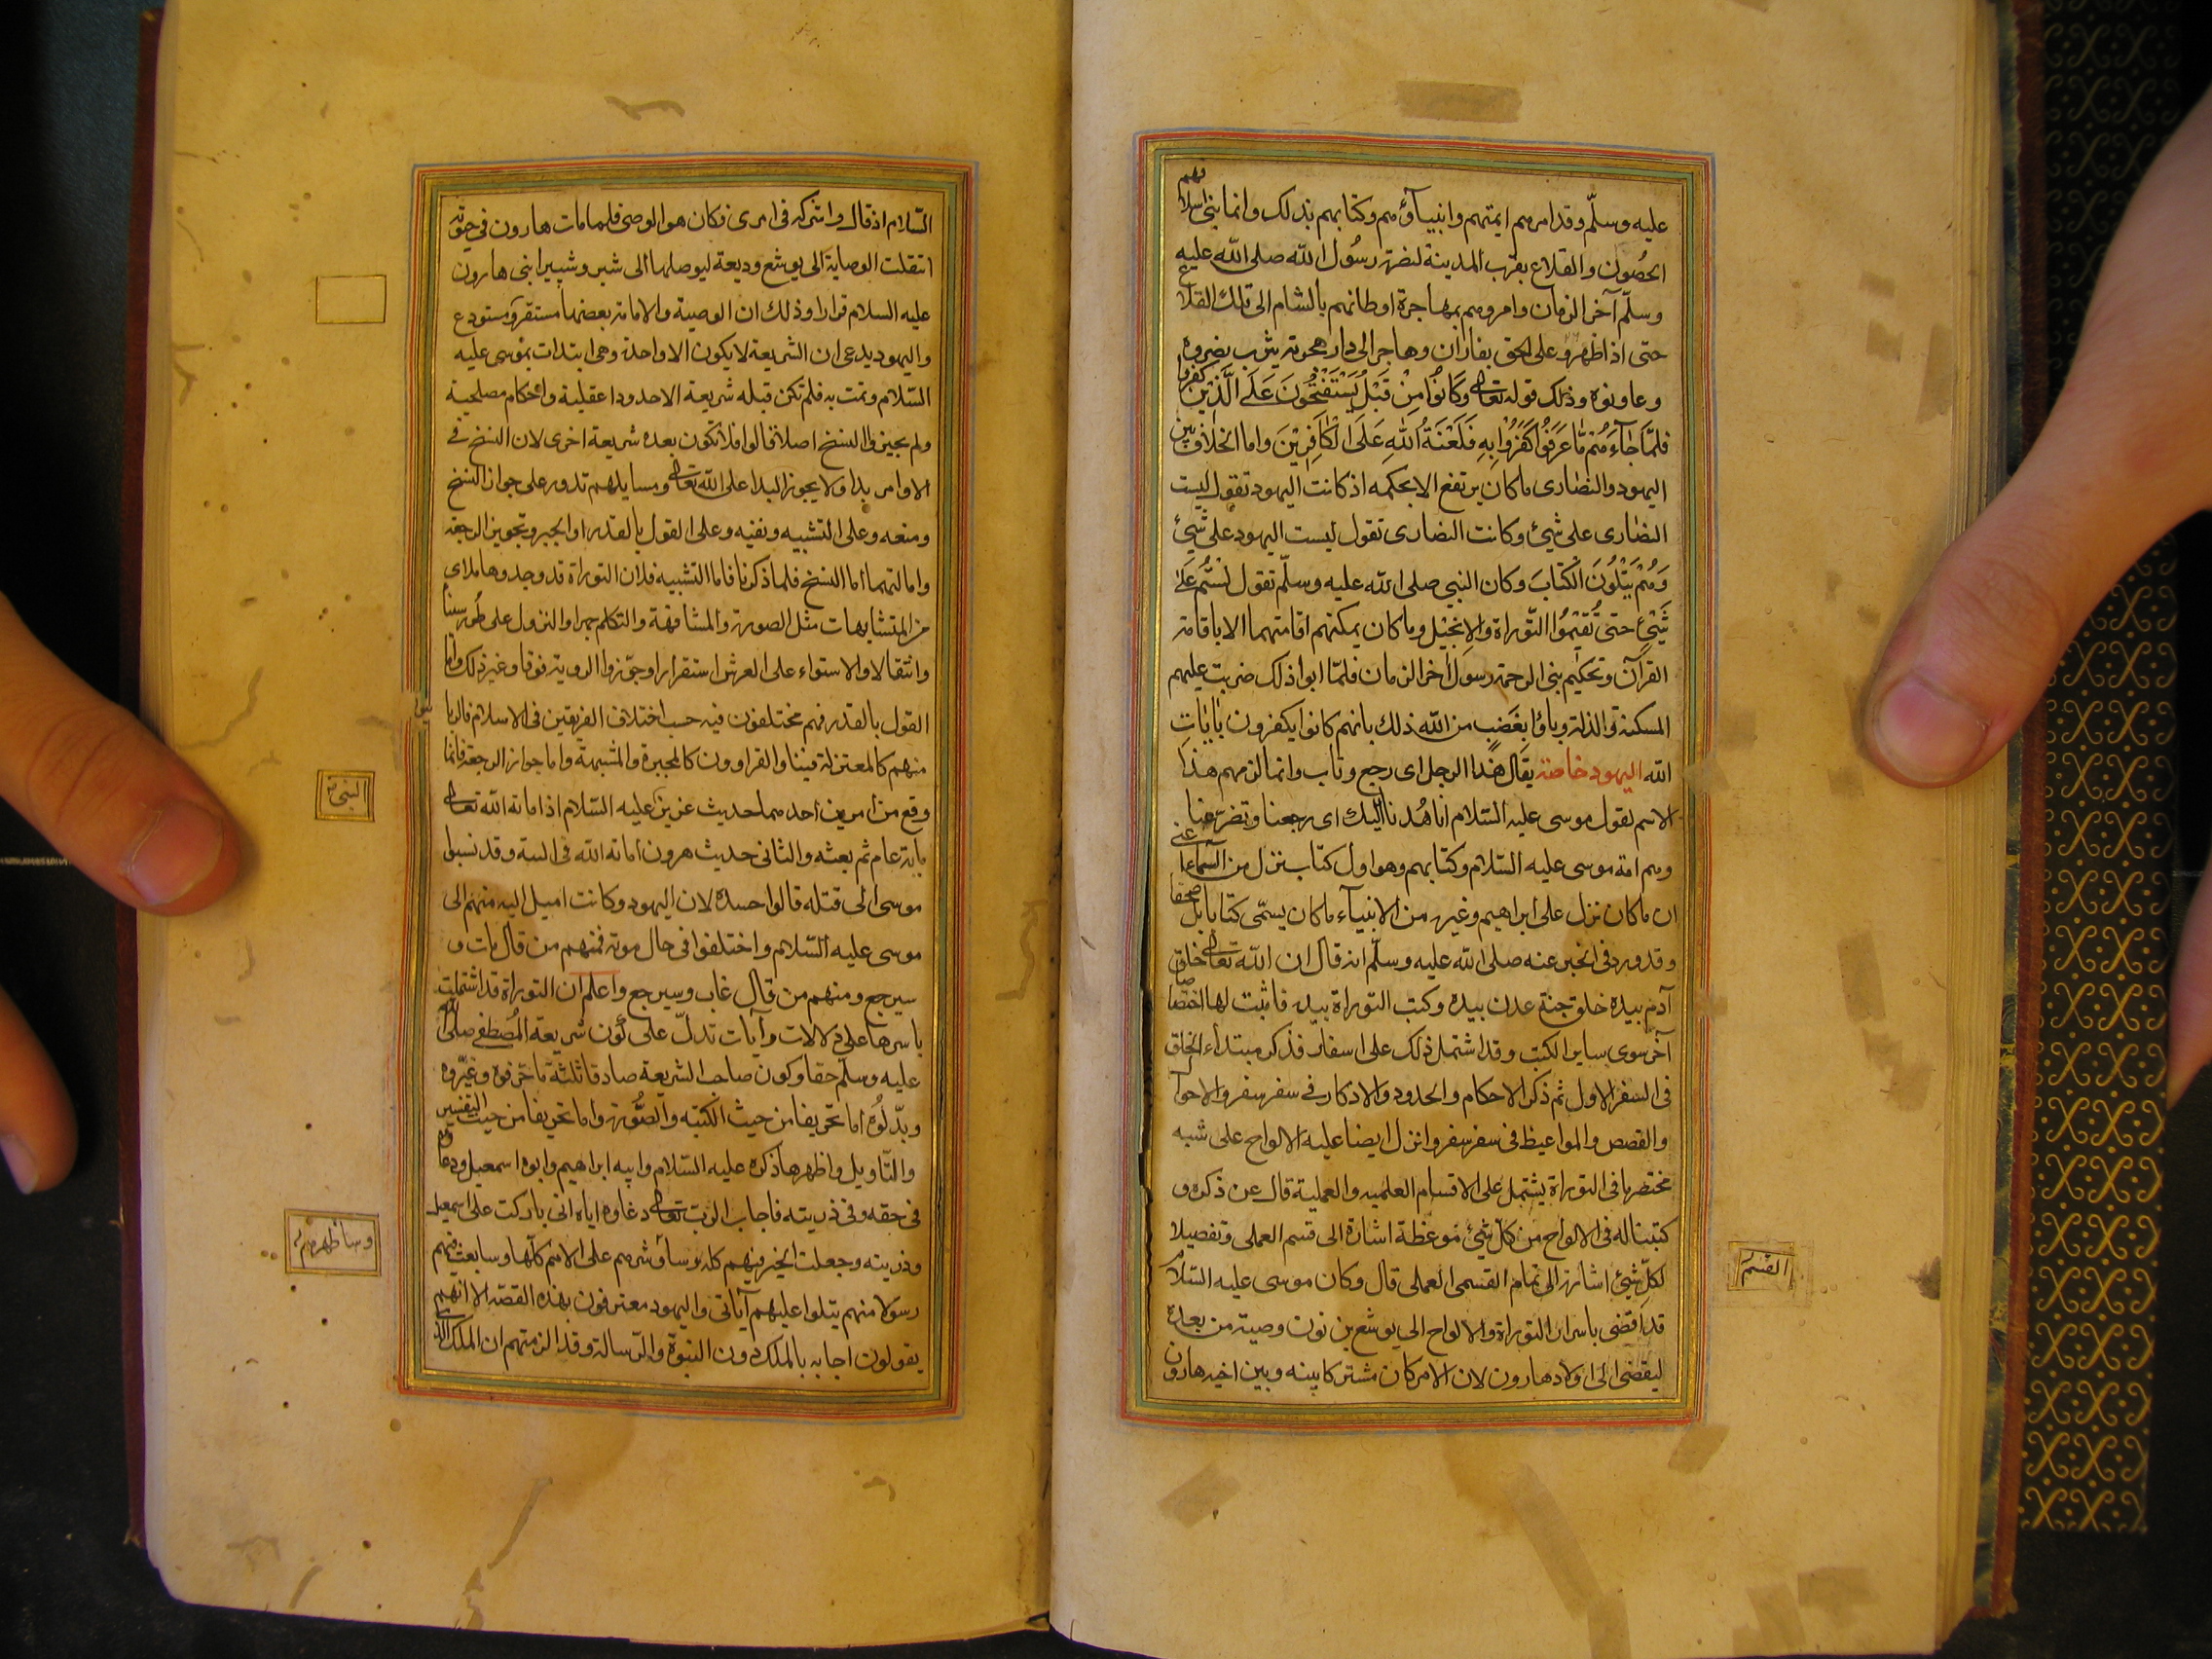 عليه وسلّم وقد امرهم ايمتهم وانبيآؤهم وكتابهم بذلك وانما بنى اسلافهم
الحصُون والقلاع بقرب المدينة لنصرة رسُول الله صلى الله عليه
وسلّم آخر الزمان وامروهم بمهاجرة اوطانهم بالشام الى تلك القلاع
حتى اذا ظهر وعلى الحق بفاران وهاجر الى دار هجرته يثرب نصروه
وعاونوه وذلك قوله تعالى وَكَانُوا مِنْ قَبْلُ يَسْتَفْتِحُونَ عَلَى الَّذِيْنَ كَفَرُوا
فَلَمَّا جَآءَهُمْ مَّا عَرَفُوْا كَفَرُوْا بِهِ فَلَعْنَةُ اللهِ عَلَى الْكَافِرِيْنَ واما الخلاف بين
اليهود والنصارى ما كان يرتفع الا بحكمه اذ كانت اليهود تقول ليست
النصارى على شيئ وكانت النصارى تقول ليست اليهود على شيئ
وَهُمْ يَتْلُوْنَ الْكِتَابَ وكان النبي صلى الله عليه وسلّم تقول لَسْتُمْ عَلَى
شَيْئٍ حتى تُقِيْمُوا التّوراة والانجيْل وما كان يمكنهم اقامتهما الا باقامة
القرآن وتحكيم بنى الرحمة رسول آخر الزمان فلمّا ابوا ذلك ضربت عليهم
المسكنة والذلة وباؤا بغَضَبٍ من الله ذلك بانهم كانوا يكفرون بآيات
الله اليهود خاصة يقال هَدَا الرجل اى رجع وتاب وانما لزمهم هذا
الاسم لقول موسى عليه السّلام انا هُدنا اليك اى رجعنا وتضرّعنا
وهم امة موسى عليه السّلام وكتابهم وهو اول كتاب نزل من السّماء عنى
ان ما كان نزل على ابراهيم وغيره من الانبيآء ما كان يسمّى كتابا بل صحفا
وقد ورد فى الخبر عنه صلى الله عليه وسلّم انه قال ان الله تعالى خلق
آدم بيده خلق جنة عدن بيده وكتب التوراة بيده فاثبت لها اختصاصا
آخر سوى ساير الكتب وقد اشتمل ذلك على اسفار فذكر مبتداء الخلق
فى السفر الاول ثم ذكر الاحكام والحدود والاذكار فى سفر سفر والاحوا
والقصص والمواعيظ فى سفر سفر وانزل ايضا عليه الالواح على شبه
مختصر ما فى التوراة يشتمل على الاقسام العلميه والعملية قال عن ذكره و
كتبنا له فى الالواح من كل شيئ موعظة اشارة الى قسم العملى وتفصيلا
لكلّ شيئ اشارة الى تمام القسمى العملى قال وكان موسى عليه السّلام
قد افضى باسرار التوراة والالواح الى يوشع بن نون وصيته من بعده
ليفضى الى اولاد هارون لان الامر كان مشتركا بينه وبين اخيه هارون
القسم
السّلام اذ قال واشركه فى امرى وكان هو الوصى فلما مات هارون فى حيوته
انتقلت الوصاية الى يوشع وديعة ليوصلها الى شبر وشبير ابنى هارون
عليه السلام قرارا وذلك ان الوصية والامامة بعضها مستقر ومستودع
واليهود يدعى ان الشريعة لا يكون الا واحدة وهى ابتدات بموسى عليه
السّلام وتمت به فلم تكن قبله شريعة الا حدودا عقلية واحكام مصلحية
ولم يجيزوا النسخ اصلا قالوا فلا تكون بعده شريعة اخرى لان النسخ فى
الاوامر بدا ولا يجوز البدا على الله تعالى ومسايلهم تدور على جواز النسخ
ومنعه وعلى التشبيه ونفيه وعلى القول بالقدر او الجبر وتجويز الرجعة
واما لتهما اما النسخ فلما ذكرنا فاما التشبيه فلان التوراة قد وجدوها ملاى
من المتشابهات مثل الصورة والمشافهة والتكلم جهرا والنزول على طور سينا
وانتقالا والاستواء على العرش استقرارا وجوّزوا الروية فوقا وغير ذلك واما
القول بالقدر فهم مختلفون فيه حسب اختلاف الفريقين فى الاسلام فالربا
نيون
منهم كالمعتزلة فينا والقراوون كالمجبرة والمشبهة واما جواز الرجعة فانما
وقع من امرين احدهما حديث عزير عليه السّلام اذ اماته الله تعالى
ماية عام ثم بعثه والثانى حديث هرون اماته الله فى التية وقد نسبوا
موسى الى قتله قالوا حسده لان اليهود وكانت اميل اليه منهم الى
موسى عليه السّلام واختلفوا فى حال موته فمنهم من قال مات و
سيرجع ومنهم من قال غاب وسيرجع واعلم ان التوراة قد اشتملت
باسرها على دلالات وآيات تدلّ على كون شريعة المُصطفى صلى الله
عليه وسلّم حقا وكون صاحب الشريعة صادقا ثلثة ما حرفوه وغيّروه
وبدّلوُه اما تحريفا من حيث الكتبه والصُّورة واما تحريفا من حيث التفسير
والتاويل واظهرها ذكره عليه السّلام وابيه ابراهيم وابوه اسمعيل ودعاؤه
فى حقه وفى ذريته فاجاب الرب تعالى دعاوه اياه انى باركت على اسمعيل
وذريته وجعلت الخير فيهم كله وسأوثرهم على الامم كلّها وسابعث فيهم
رسولا منهم يتلوا عليهم آياتى واليهود معترفون بهذه القصّة الا انهم
يقولون اجابه بالملك دون النبوة والرّسالة وقد الزمتهم ان الملك الذى
وساظهرهم